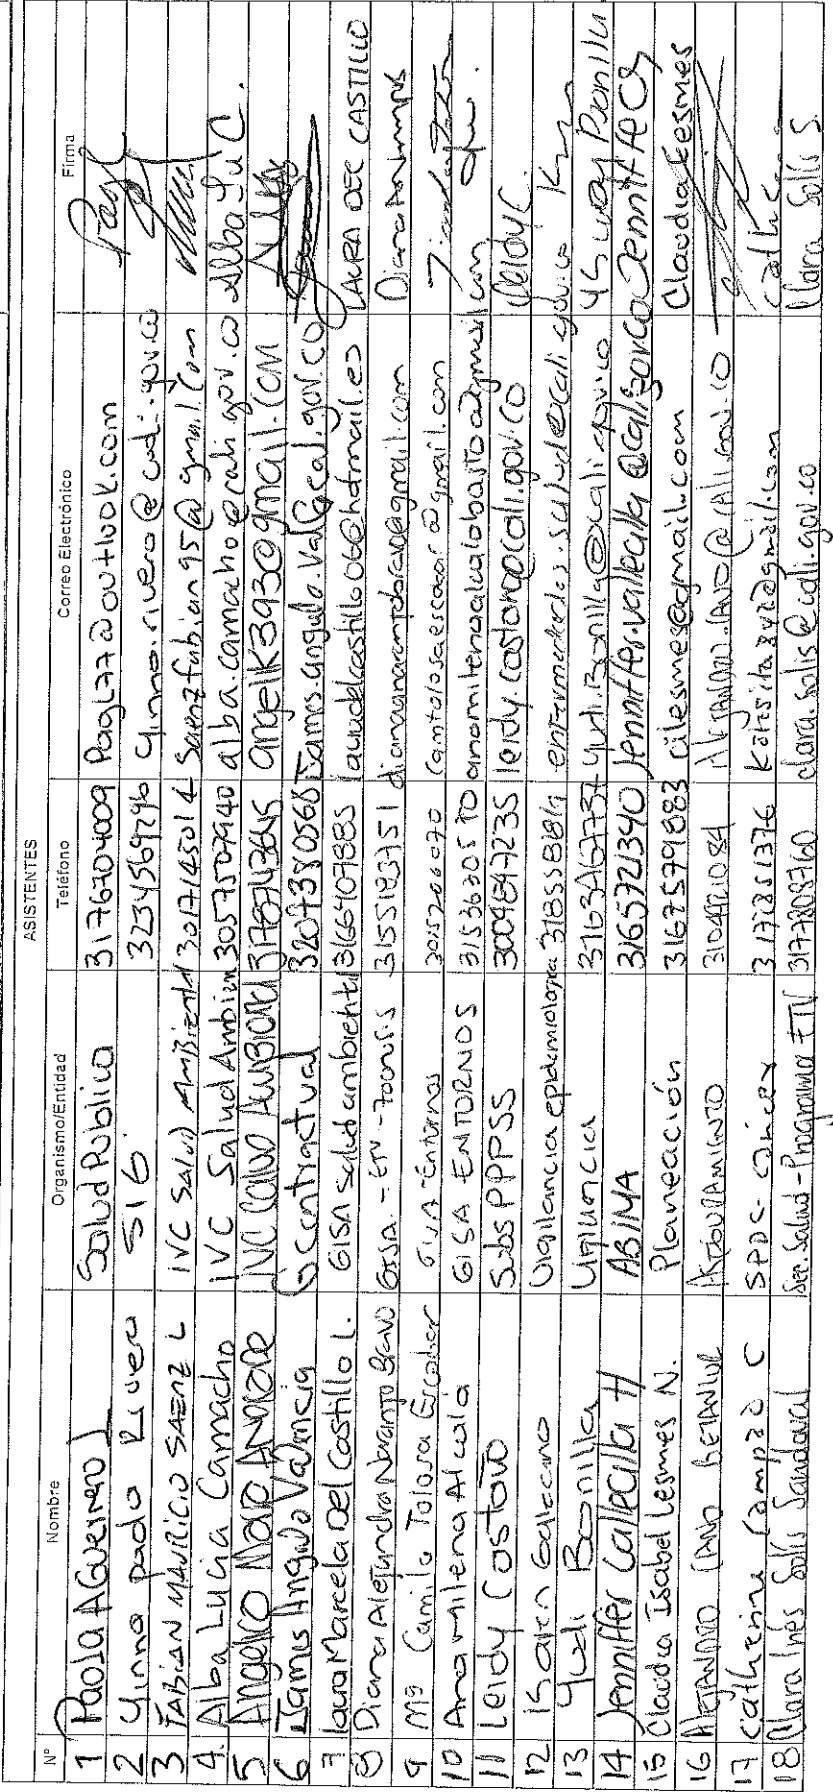 ASISTENTES
N° Nombre Organismo/Entidad Teléfono Correo Electrónico Firma
1 Paola A Guerrero J Salud Publica 3176704009 Pagl77@outlook.com
2 Yinna paola Rivera SIG 3234569296 Yinna.rivera@cali.gov.co
3 FABIAN MAURICIO SAENZ L IVC SALUD AMBIENTAL 3017145014 Saenzfabian95@gmail.com
4. Alba Lucia Camacho IVC Salud Ambien 3057507940 alba.camacho@cali.gov.co Alba Lu C.
5 ANGELICA ANDRADE IVC SALUD AMBIENTAL 3178743645 angelik393@gmail.com
6 James Angulo Valencia G Contractual 3207380565
7 Laura Marcela Del Castillo L. GISA Salud ambiental 3166407885 lauradelcastillo06@hotmail.es LAURA DEL CASTILLO
8 Diana Alejandra Naranjo Bravo GISA - ETV - zoonosis 3155183751
9 Mª Camila Tolosa Escobar GISA Entornos 3015206070 camtolosaescobar@gmail.com
10 Ana milena Alcalá GISA ENTORNOS 3153630570
11 Leidy Castaño Subs PPPSS 3004847235 leidy.castano@cali.gov.co Leidy C.
12 Vigilancia epidemiologica
13 Yudi Bonilla 3163467737 yudi.bonilla@cali.gov.co
14 Jenniffer Vallecilla H ABIMA 3165721340 Jenniffer.vallecilla@cali.gov.co
15 Claudia Isabel Lesmes N. Planeación 3167579883 cilesmes@gmail.com Claudia Lesmes
16 ALEJANDRO CANO BETANCUR ASEGURAMIENTO 3104921084 ALEJANDRO.CANO@CALI.GOV.CO
17 Catherine Campo C 3172851376
18 Clara Inés Solís Sandoval Sec. Salud - Programa ETV 3177808760 clara.solis@cali.gov.co Clara Solís S.